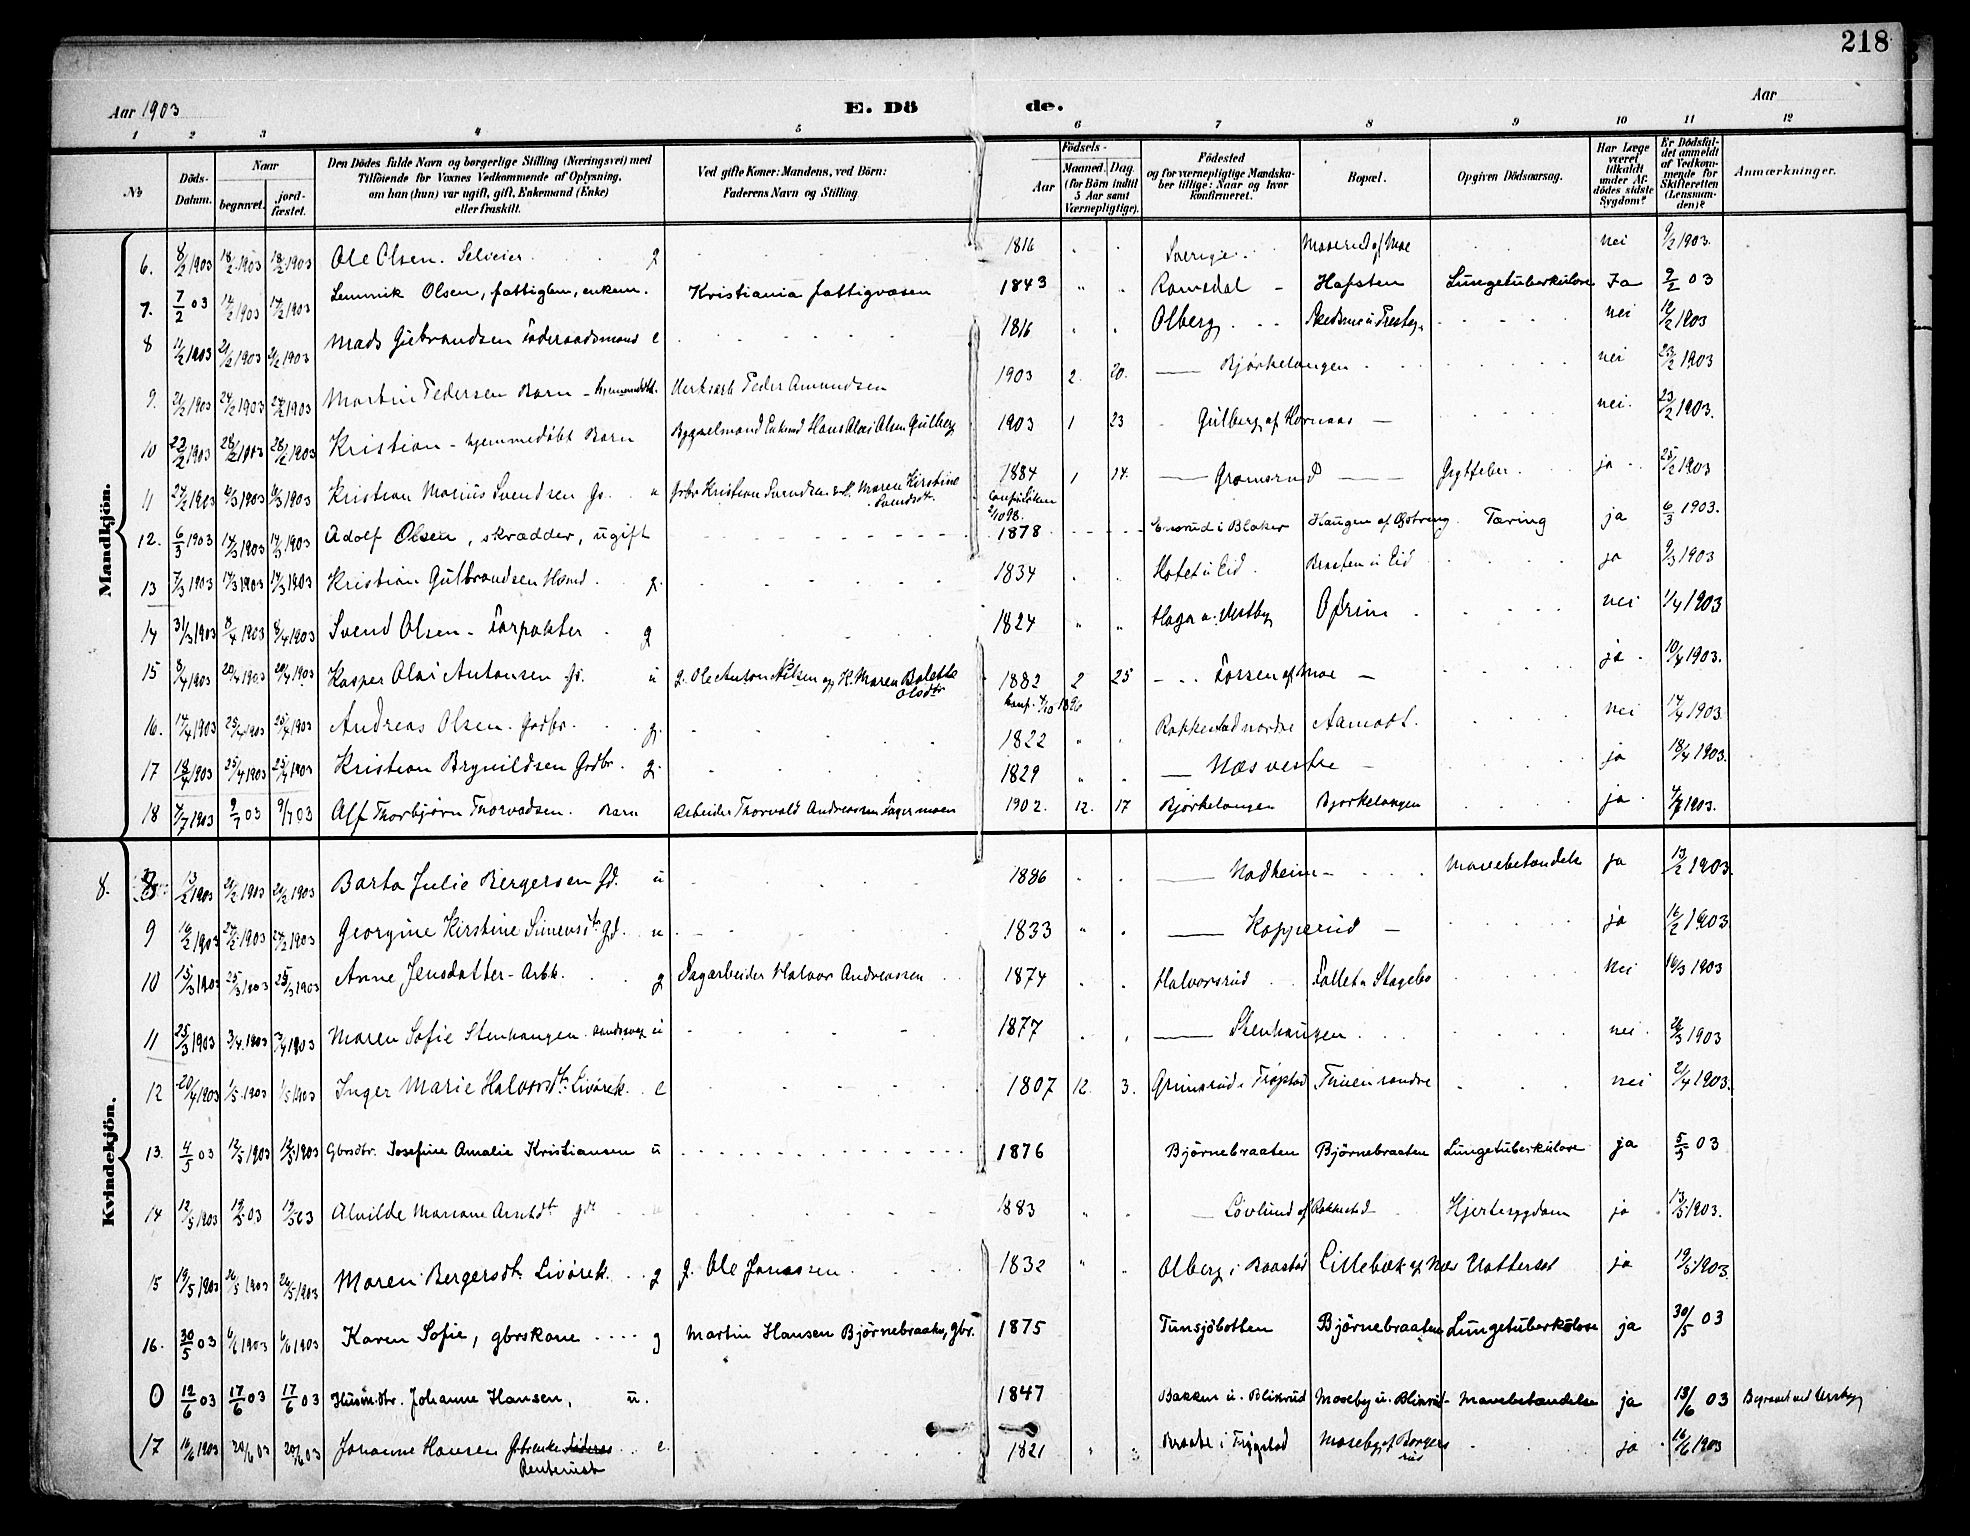 218
Aar 1903
E. Dö de.
Aar
1 2 3 4 5 6 7 8 9 10 11 12
№ Döds-Datum. Naar begravet. jord-fæstet. Den Dödes fulde Navn og borgerlige Stilling (Næringsvei) med Tilföiende for Voxnes Vedkommende af Oplysning, om han (hun) var ugift, gift, Enkemand (Enke) eller fraskilt. Ved gifte Koner: Mandens, ved Börn: Faderens Navn og Stilling. Födsels- Aar Maaned. Dag. (for Börn indtil 5 Aar samt Værnepligtige). Födested og for værnepligtige Mandskaber tillige: Naar og hvor konfirmeret. Bopæl. Opgiven Dödsaarsag. Har Læge været tilkaldt under Afdödes sidste Sygdom? Er Dödsfaldet anmeldt af Vedkommende for Skifteretten (Lensmanden)? Anmærkninger.
Mandkjön.
6. 8/2 1903 18/2 1903 18/2 1903 Ole Olsen. Selveier g 1816 Sverige Moserud af Moe nei 9/2 1903.
7. 7/2 03 14/2 1903 14/2 1903 Olsen, fattiglem, enkem. Kristiania fattigvæsen 1843 Romsdal Hafsten Lungetuberkulose Ja 9/2 03
8 11/2 1903 21/2 1903 21/2 1903 Mads Gulbrandsen Föderaadsmand e 1816 Olberg nei 12/2 1903
9. 21/2 1903 24/2 1903 24/2 1903 Martin Pedersen Barn - hjemmedöbt. Peder Amundsen 1903 2. 20. Bjørkelangen nei 23/2 1903
10 22/2 1903 28/2 1903 28/2 1903 Kristian - hjemmedöbt Barn Hans Olai Olsen Gulberg 1903 1 23 Gulberg af Hornaas nei. 23/2 1903.
11 24/2 1903 6/3 1903 6/3 1903 Kristian Marius Svendsen Gs. u Gbr Kristian Svendsen & H. Maren Kirstine Svendsdt. 1884 1 14. Gromsrud Gigtfeber ja 25/2 1903
12. 6/3 1903 14/3 1903 14/3 1903 Adolf Olsen, skrædder, ugift 1878 Ensrud i Blaker Haugen af Østreng Tæring ja 6/3 1903.
13 7/3 1903 17/3 1903 17/3 1903 Kristian Gulbrandsen Husmd. g. 1834 Hotet i Eid Braaten i Eid ja 9/3 1903
14 31/3 1903 8/4 1903 8/4 1903 Svend Olsen - Forpakter g 1824 Haga u. Vestby Ofrim nei 1/4 1903
15 8/4 1903 20/4 1903 20/4 1903 Kasper Olai Antonsen Gs. u g. Ole Anton Nilsen og H. Maren Bolette Olsdtr 1882 2 25 Fossen af Moe ja 10/4 1903.
16. 14/4 1903 25/4 1903 25/4 1903 Andreas Olsen. Grdbr. g. 1822 Rakkestad nordre Aamodt. nei 17/4 1903.
17 18/4 1903 25/4 1903 25/4 1903 Kristian Brynildsen Grdbr. g. 1829 Næs vestre ja 18/4 1903.
18 7/7 1903 9/7 03 9/7 03 Alf Thorbjørn Thorvadsen. Barn Arbeider Thorvald Andreassen Fagermoen 1902. 12. 17 Bjørkelangen Bjørkelangen ja 7/7 1903.
Kvindekjön.
8. 13/2 1903 21/2 1903 21/2 1903 Barta Julie Bergersen Gd. u 1886 Nadheim Mavebetændelse ja 13/2 1903.
9 16/2 1903 24/2 1903 24/2 1903 Georgine Kirstine Simensdtr Gd. u 1833 Kopperud ja 16/2 1903
10 15/3 1903 25/3 1903 25/3 1903 Anne Jensdatter - Arbk. g Dagarbeider Halvor Andreassen 1874 Halvorsrud Follet u Skogebø nei 16/3 1903
11 25/3 1903 3/4 1903 3/4 1903 Maren Sofie Stenhaugen u 1877 Stenhaugen nei 26/3 1903
12 20/4 1903 1/5 1903 1/5 1903 Inger Marie Halvorsdtr. Livörek. e 1807 12. 3. Grimsrud i Trøgstad Tuven søndre nei 21/4 1903.
13. 4/5 03 12/5 1903 12/5 1903 Gbrsdtr. Josefine Amalie Kristiansen u 1876 Bjørnebraaten Bjørnebraaten Lungetuberkulose ja 5/5 03
14 12/5 1903 19/5 03 19/5 03 Alvilde Mariane gd. u 1883 Løvlund af Rakkestad Hjertesygdom ja 13/5 1903.
15 19/5 1903 26/5 1903 26/5 1903 Maren Bergersdtr. Livörek. g g. Ole Jonassen 1832 Olberg i Baastad Lillebæk af Næs Vattersot ja 19/5 1903.
16. 30/5 03 6/6 1903 6/6 1903 Karen Sofie, gbrskone g Martin Hansen Bjørnebraaten, gbr. 1875 Tunsjøbotten Bjørnebraaten Lungetuberkulose ja 30/5 03
0 12/6 03 17/6 03 17/6 03 Husmdtr. Johanne Hansen, u. 1847 Bakken u. Blixrud Moseby u. Blixrud Mavebetændelse ja 13/6 03 Begravet ved Ursby
17 16/6 1903 20/6 03 20/6 03 Johanne Hansen Gbrenke Rentenist e. 1821 Braate i Trøgstad Moseby af Borgersrud ja 16/6 1903